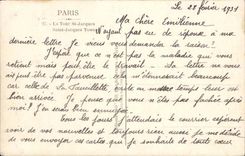 PARIS
La Tour St-Jacques
Saint-Jacques Tower
Le 28 février 1931
Ma Chère
N'ayant pas eu de réponse à ma
dernière lettre je viens vous demander la raison?
J'espère que ce n'est pas la maladie qui vous
retient mais peut être le travail. Ma lettre ne vous
est peut être pas parvenue cela m'étonnerait beaucoup
car celle de la en même temps leur est
bien arrivée. Je pense que vous n'êtes pas fachée après
moi j'en serais bien
Tous les jours j'attendais le courrier espérant
voir de vos nouvelles et toujours rien aussi je me décide
de vous envoyer ces cartes que je souhaite de tout cœur